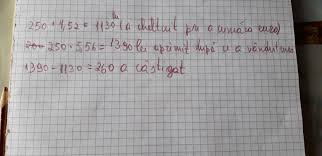 lei
250 · 4,52 = 1130 (a cheltuit pt a cumpăra euro)
250 · 5,56 = 1390 lei a primit după ce a vândut euro
1390 - 1130 = 260 a câștigat